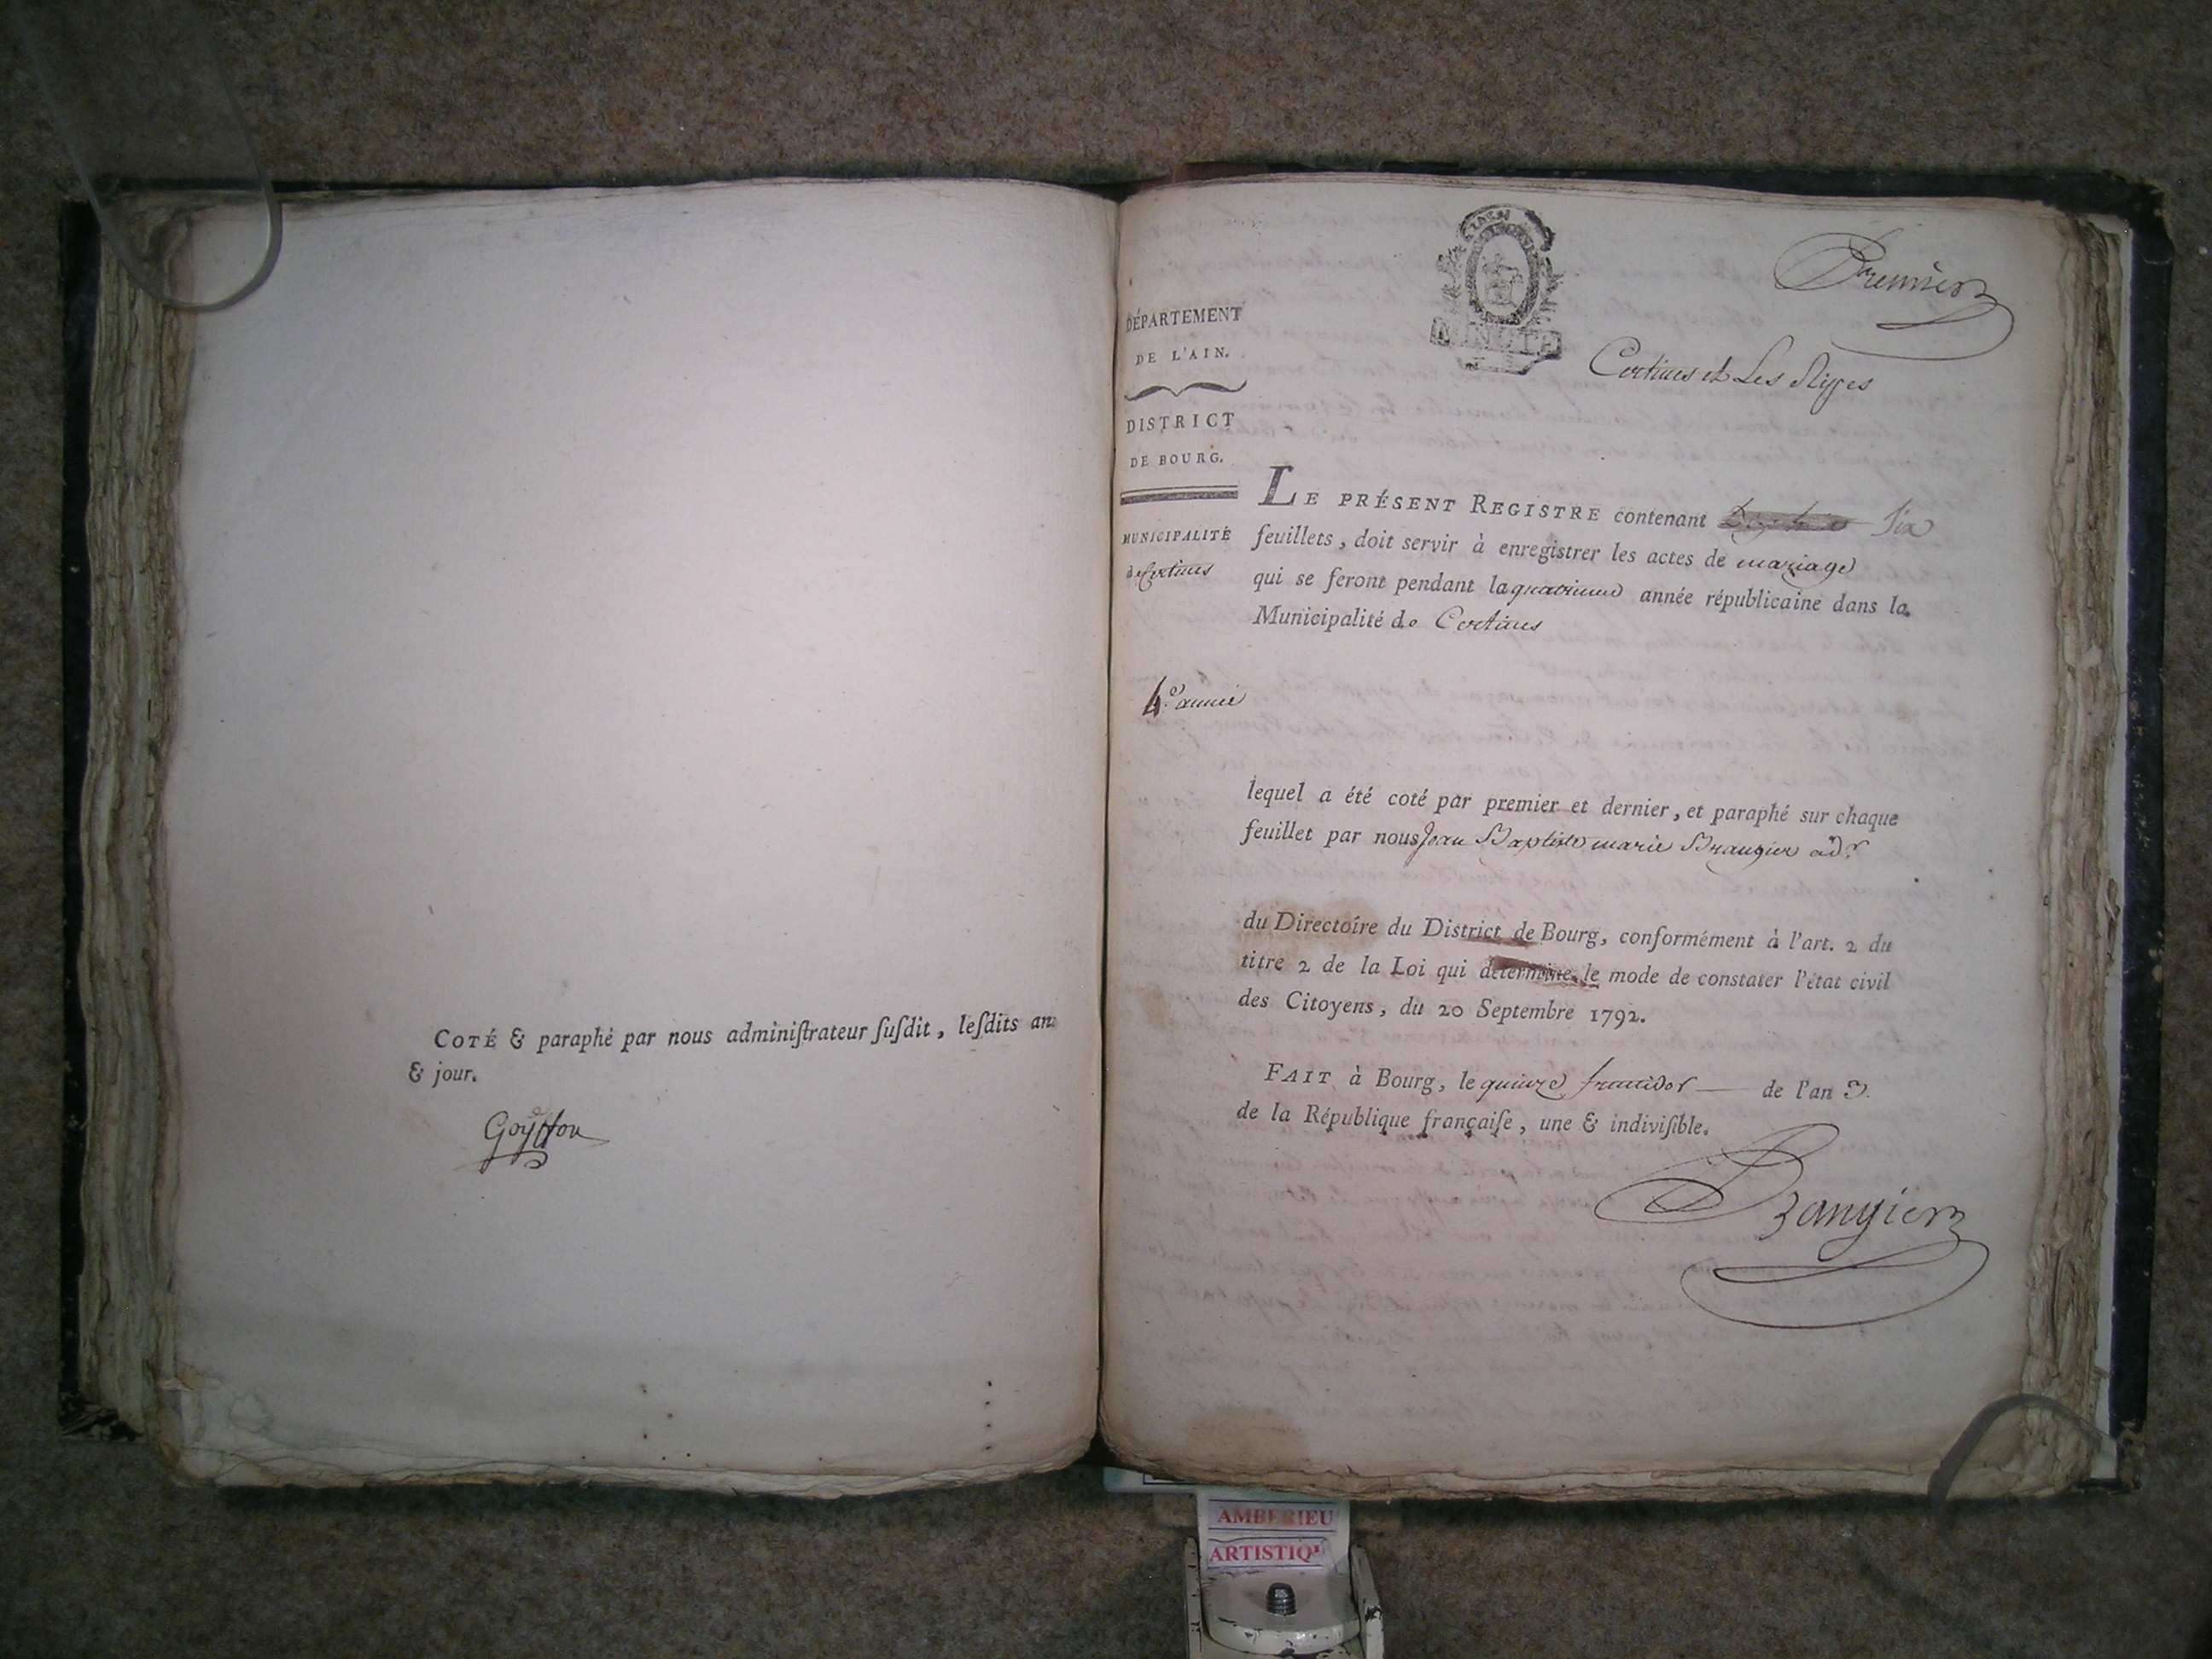 COTÉ & paraphé par nous adminiſtrateur ſuſdit, leſdits an
& jour.
Goyffon
Premier
Certines et Les Rippes
DÉPARTEMENT
DE L'AIN.
DISTRICT
DE BOURG.
MUNICIPALITÉ
de Certines
LE PRÉSENT REGISTRE contenant Six
feuillets, doit servir à enregistrer les actes de mariage
qui se feront pendant la quatrieme année républicaine dans la
Municipalité de Certines
4.e année
lequel a été coté par premier et dernier, et paraphé sur chaque
feuillet par nous Jean Baptiste marie Brangier adr
du Directoire du District de Bourg, conformément à l'art. 2 du
titre 2 de la Loi qui détermine le mode de constater l'état civil
des Citoyens, du 20 Septembre 1792.
FAIT à Bourg, le quinze fructidor de l'an 3.
de la République françaiſe, une & indiviſible.
Brangier
AMBERIEU
ARTISTIQU